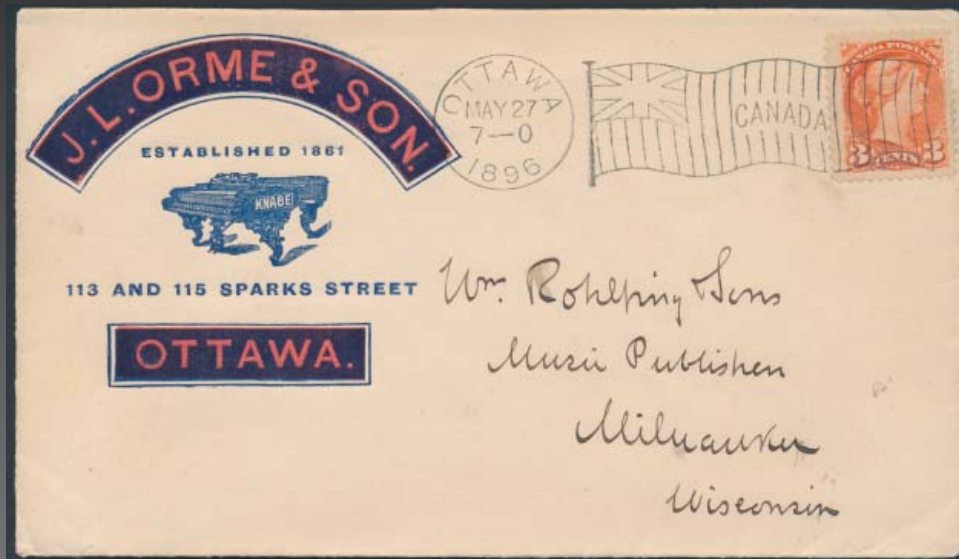 J. L. ORME & SON.
ESTABLISHED 1861
KNABE
113 AND 115 SPARKS STREET
OTTAWA.
OTTAWA
MAY 27
7—0
1896
CANADA
CANADA POSTAGE
3 CENTS 3
Wm. Rohlfing & Sons
Music Publisher
Milwaukee
Wisconsin